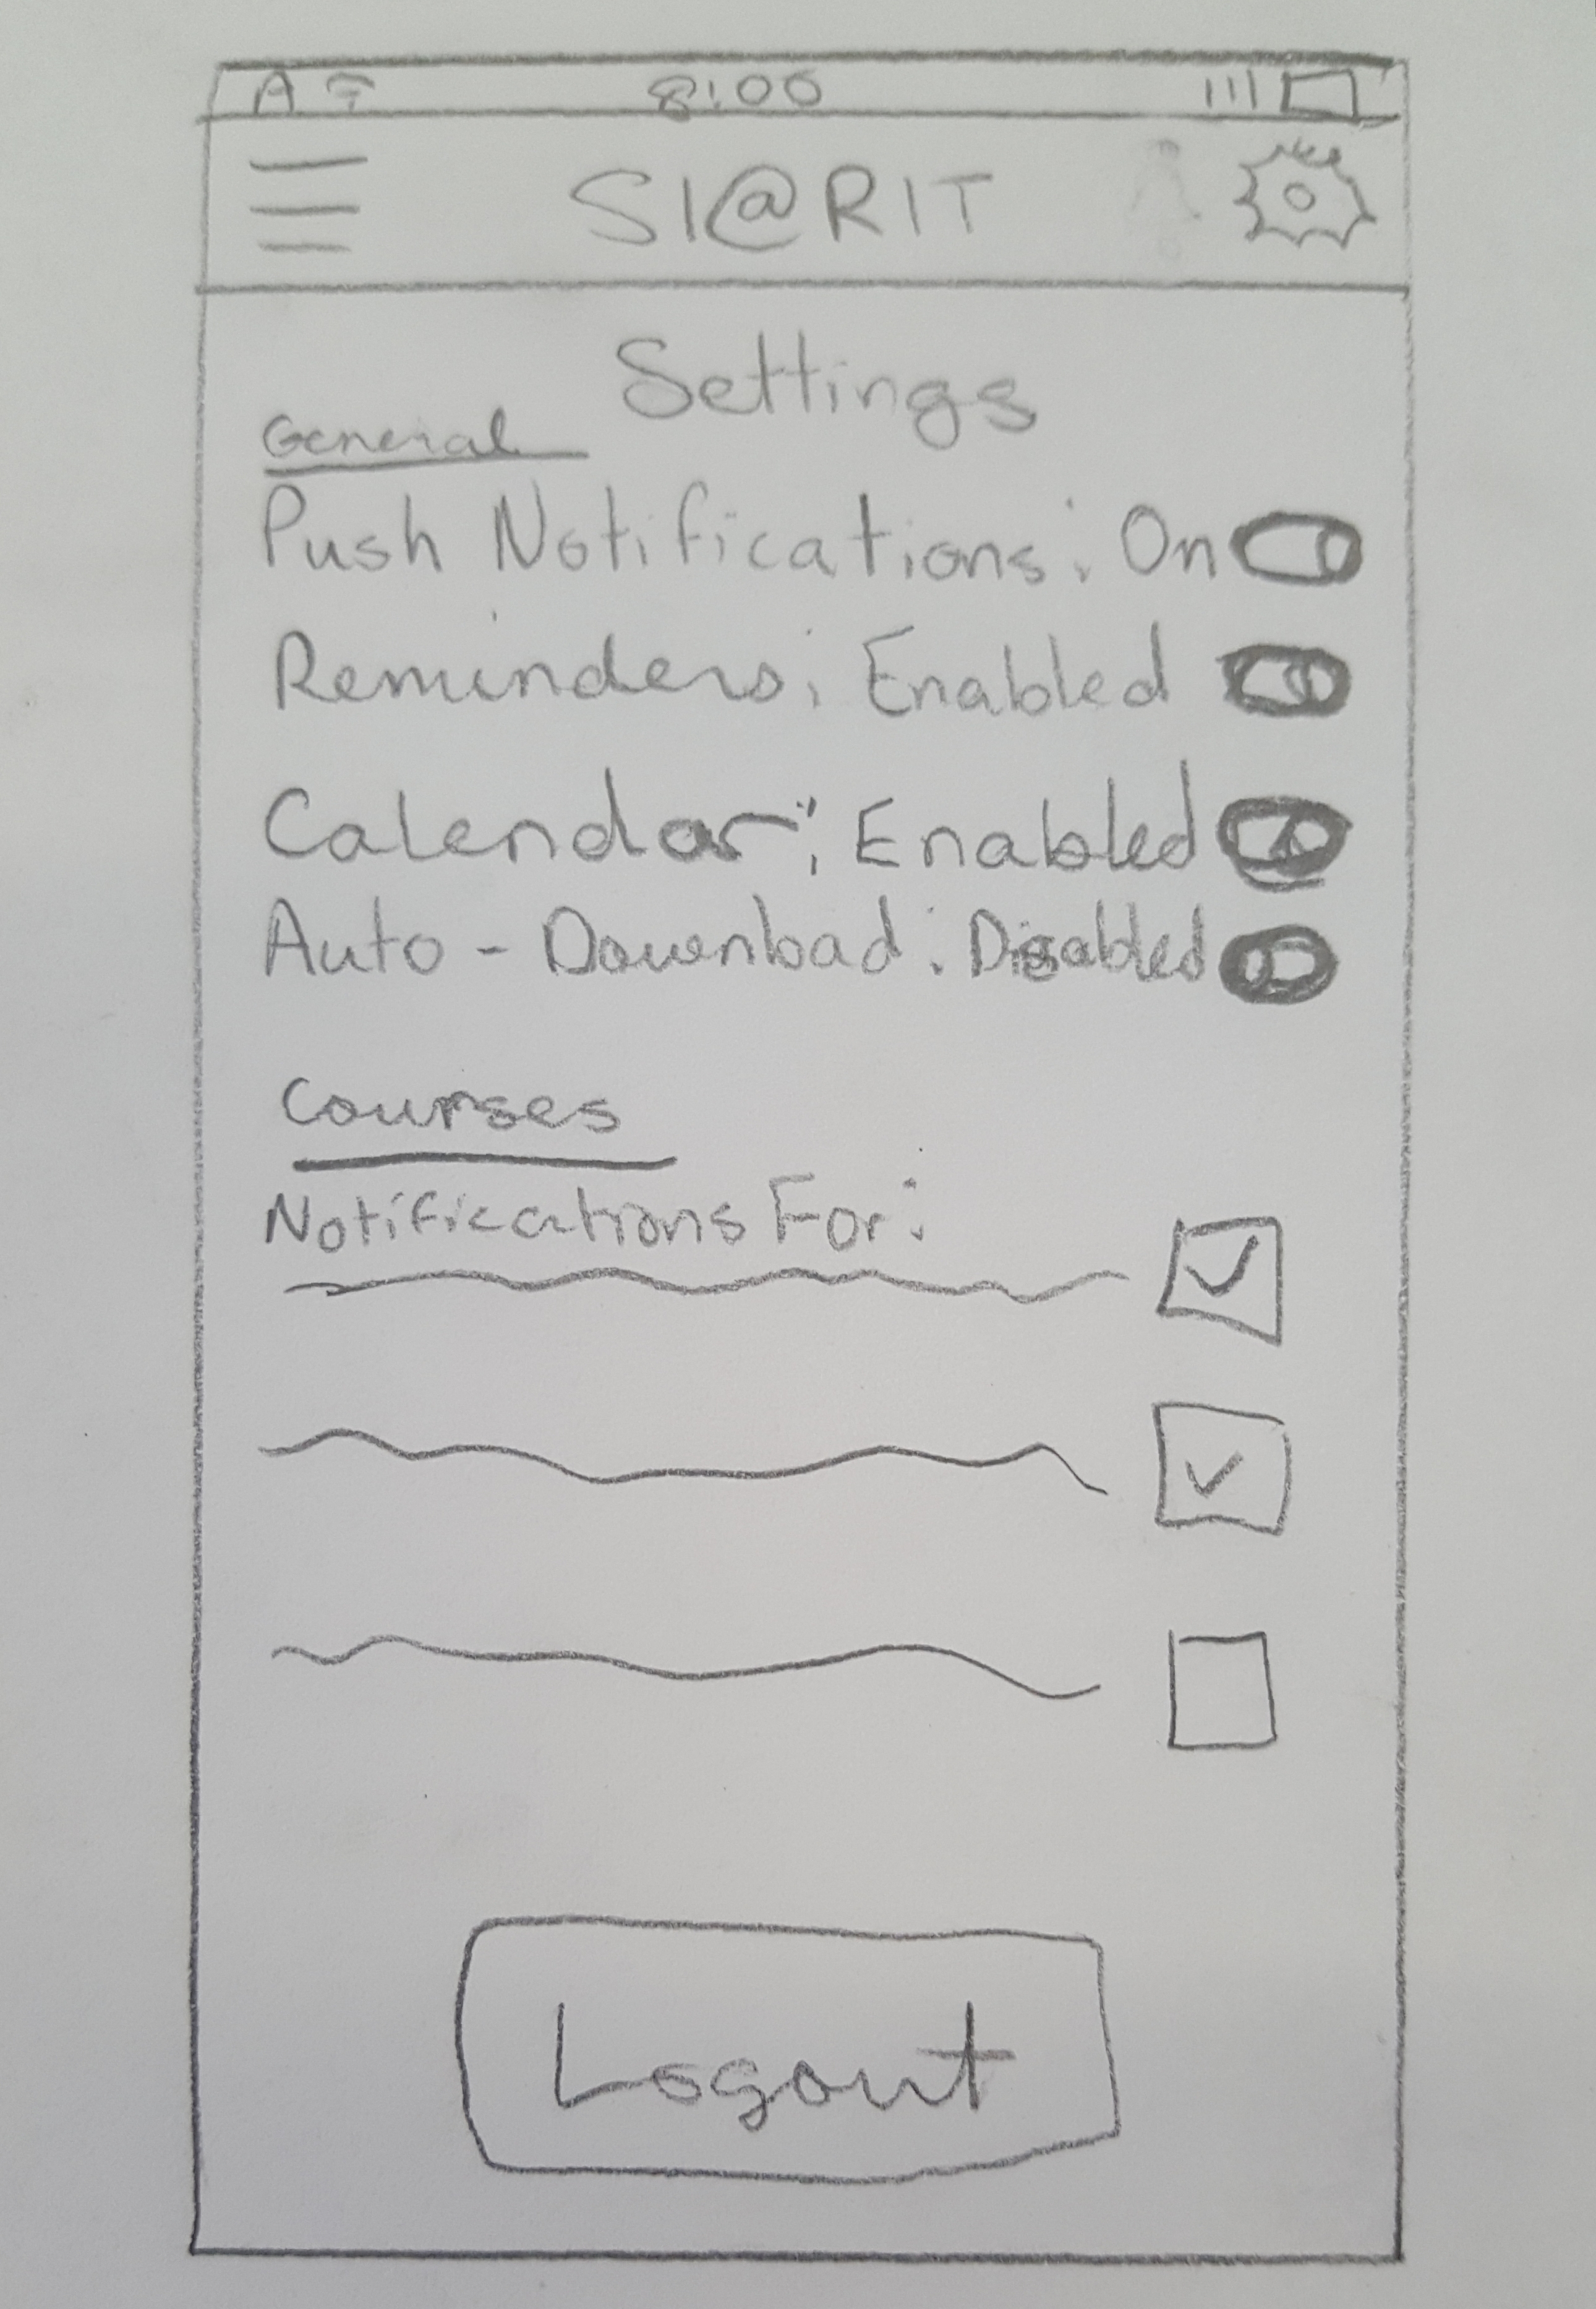 A 8:00
SI@RIT
Settings
General
Push Notifications: On
Reminders: Enabled
Calendar: Enabled
Auto-Download: Disabled
Courses
Notifications For:
Logout